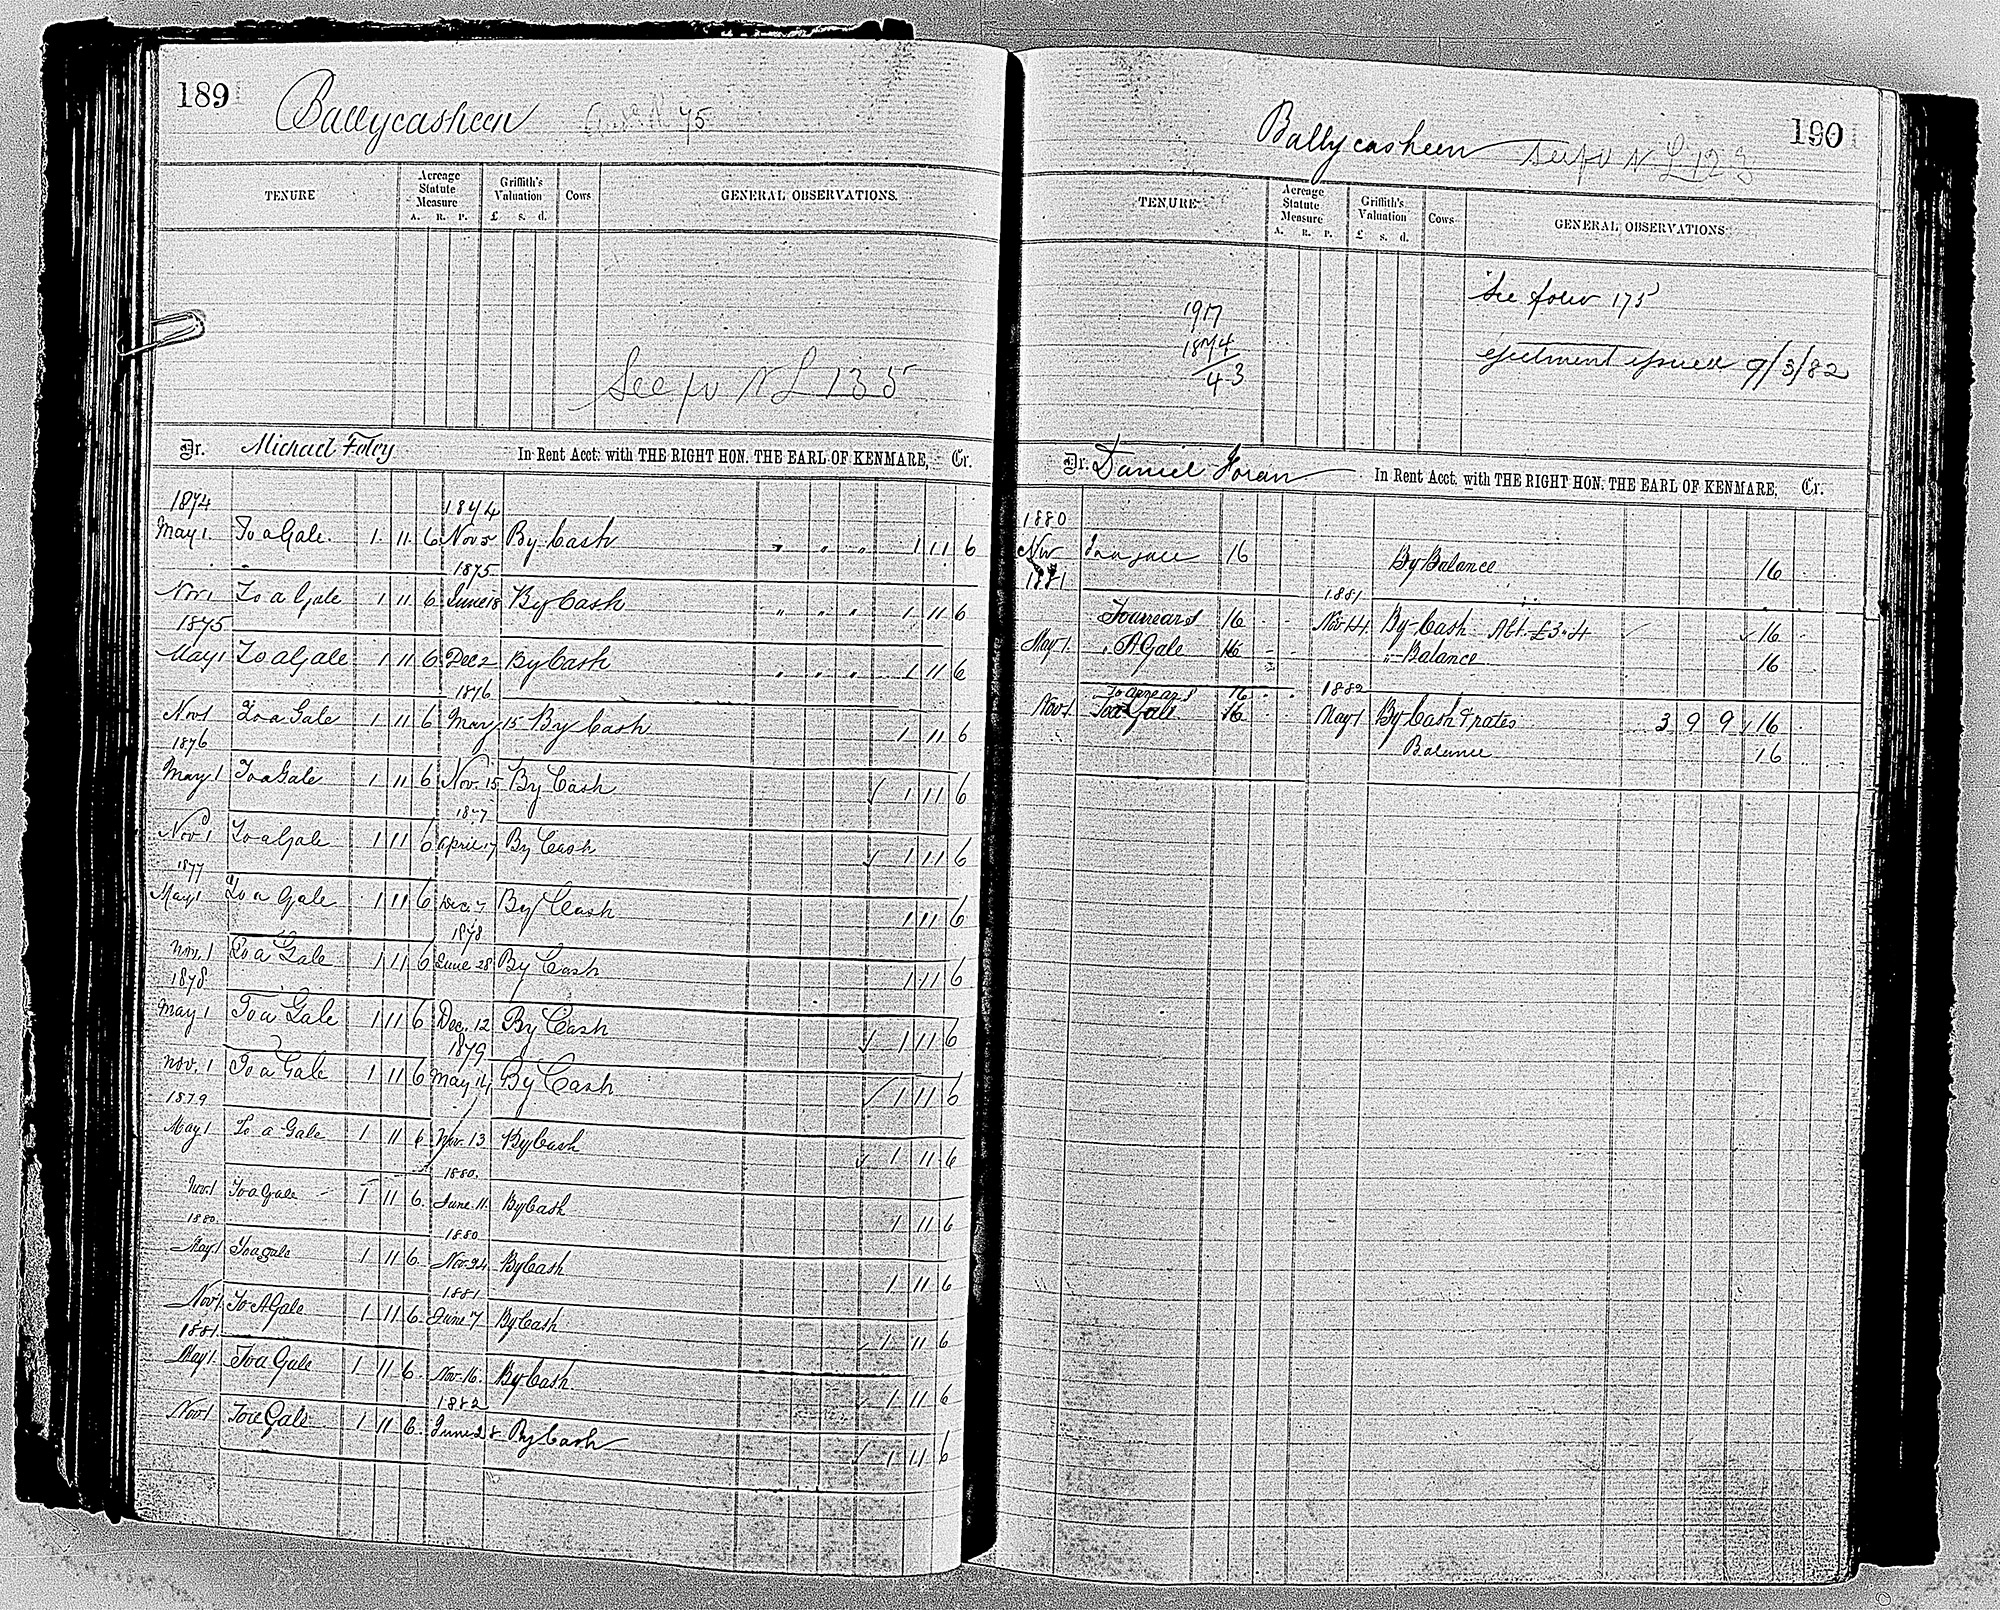 189
Ballycasheen 75
TENURE Acreage Statute Measure A. R. P. Griffith's Valuation £ s. d. Cows GENERAL OBSERVATIONS.
See fo N L 135
Dr. Michael Foley In Rent Acct: with THE RIGHT HON. THE EARL OF KENMARE, Cr.
1874 1874
May 1. To a Gale. 1 11 6 Nov 5 By Cash " " " 1 11 6
1875
Nov 1 To a Gale 1 11 6 June 18 By Cash " " " 1 11 6
1875
May 1 To a Gale 1 11 6 Dec 2 By Cash " " " 1 11 6
1876
Nov 1 To a Gale 1 11 6 May 15 By Cash 1 11 6
1876
May 1 To a Gale 1 11 6 Nov. 15 By Cash ✓ 1 11 6
1877
Nov 1 To a Gale 1 11 6 April 17 By Cash ✓ 1 11 6
1877
May 1 To a Gale 1 11 6 Dec. 7 By Cash 1 11 6
1878
Nov. 1 To a Gale 1 11 6 June 28 By Cash 1 11 6
1878
May 1 To a Gale 1 11 6 Dec. 12 By Cash ✓ 1 11 6
1879
Nov. 1 To a Gale 1 11 6 May 14 By Cash ✓ 1 11 6
1879
May 1 To a Gale 1 11 6 Nov. 13 By Cash ✓ 1 11 6
1880.
Nov. 1 To a Gale 1 11 6 June 11. By Cash 1 11 6
1880 1880
May 1 To a gale 1 11 6 Nov. 24 By Cash 1 11 6
1881
Nov 1 To A Gale 1 11 6 June 7 By Cash ✓ 1 11 6
1881
May 1. To a Gale 1 11 6 Nov. 16. By Cash ✓ 1 11 6
1882
Nov 1 To a Gale 1 11 6 June 28 By Cash ✓ 1 11 6
190
Ballycasheen See fo N L 123
TENURE Acreage Statute Measure A. R. P. Griffith's Valuation £ s. d. Cows GENERAL OBSERVATIONS
See folio 175
1917
1874
43
ejectment issued 9/3/82
Dr. Daniel Horan In Rent Acct. with THE RIGHT HON. THE EARL OF KENMARE, Cr.
1880
Nov To a gale 16 By Balance 16
1881 1881
To arrears 16 Nov 14 By Cash Abt. £3.4 ✓ 16
May 1. " A Gale 16 " Balance 16
To arrears 16 1882
Nov 1 To a Gale 16 May 1 By Cash & rates 3 9 9 ✓ 16
Balance 16